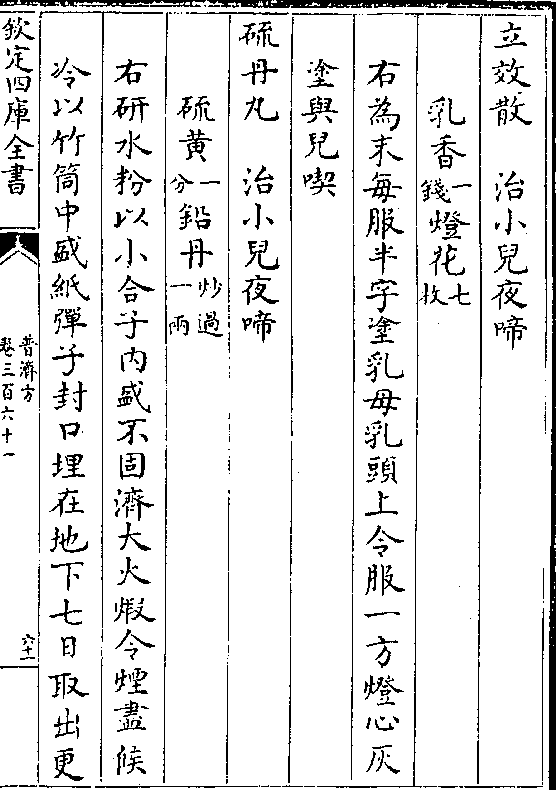 立效散　治小兒夜啼
乳香一錢燈花七枚
右為末每服半字塗乳母乳頭上令服一方燈心灰
塗與兒喫
硫丹丸　治小兒夜啼
硫黄一分鉛丹炒過一兩
右研水粉以小合子内盛不固濟大火煆令煙盡候
冷以竹筒中盛紙彈子封口埋在地下七日取出更
欽定四庫全書
普濟方
卷三百六十一
六十一